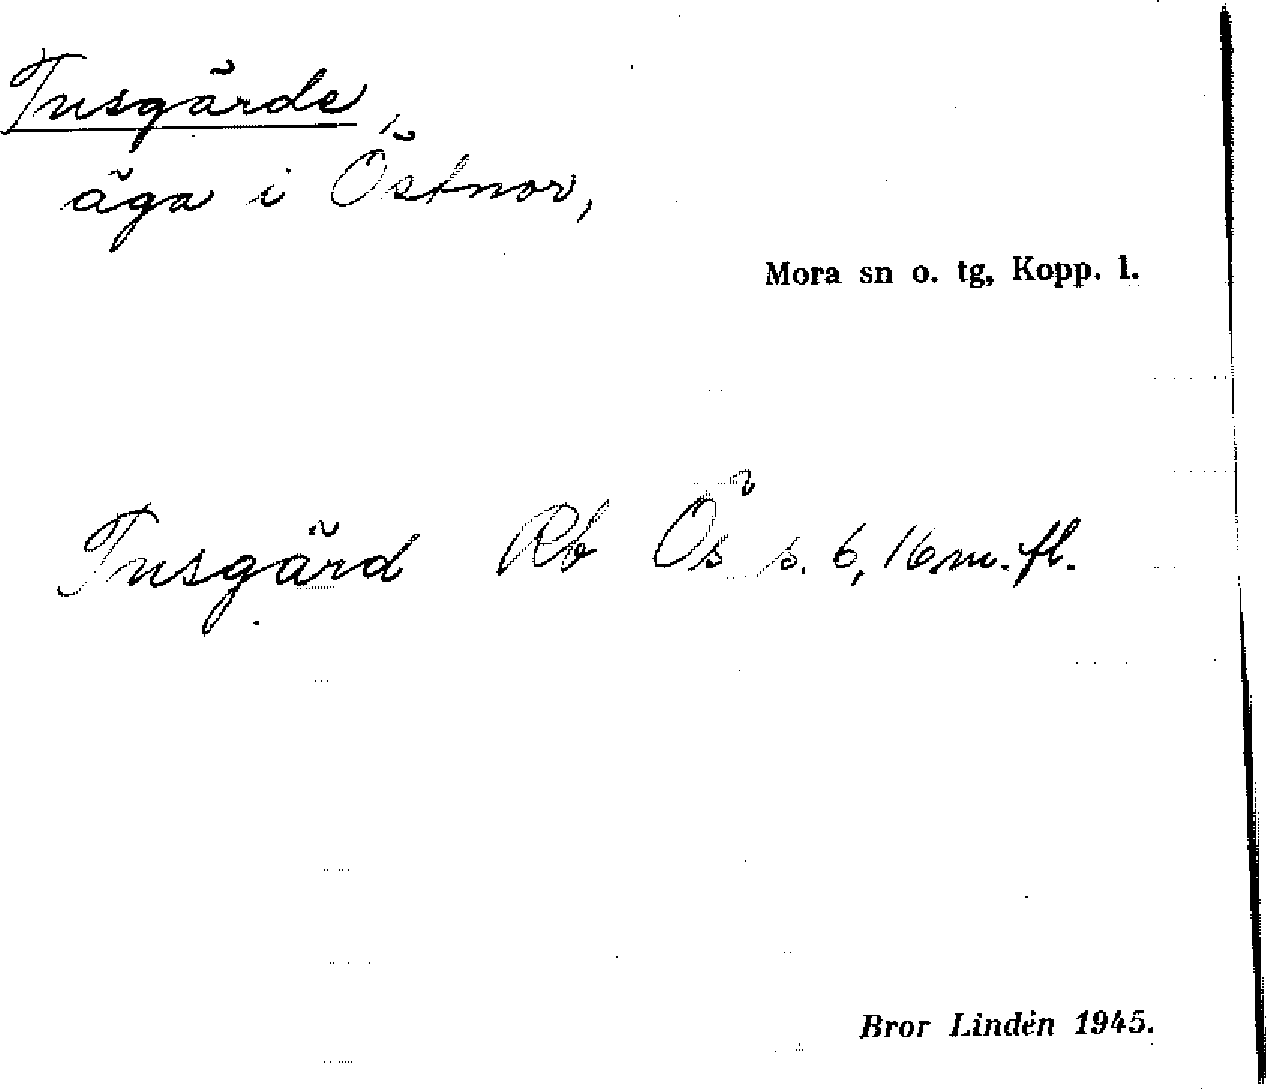 Tusgärde,
äga i Östnor,
Mora sn o. tg, Kopp. l.
Tusgärd Rb Ös s. 6, 16 m. fl.
Bror Lindén 1945.